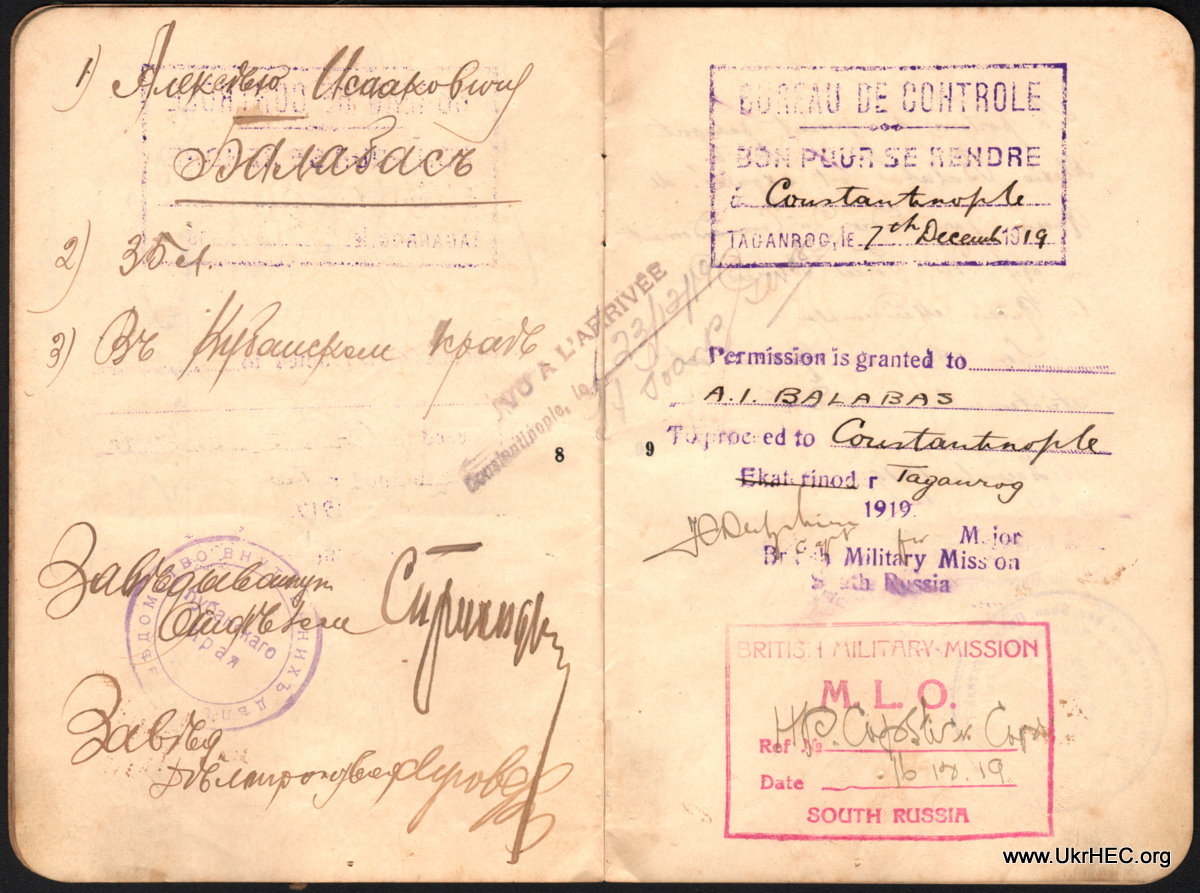 1) Алексѣю Исааковичу
Балабасъ
2) 35 л.
3) Въ Кубанском краѣ
VU A L'ARRIVÉE
Constantinople, le 23/12/19
8
Завѣдывающ
Отдѣлом
ВѢДОМСТВО ВНУТРЕННИХЪ ДѢЛЪ
Кубанскаго
Края
Завѣд
BUREAU DE CONTROLE
BON POUR SE RENDRE
à Constantinople
TAGANROG, le 7th Decemb 1919
Permission is granted to
A.I. BALABAS
To proceed to Constantinople
Ekaterinodar Taganrog
1919
9
for Major
British Military Mission
South Russia
BRITISH MILITARY MISSION
M. L. O.
Ref No
Date 16.12.19
SOUTH RUSSIA
www.UkrHEC.org